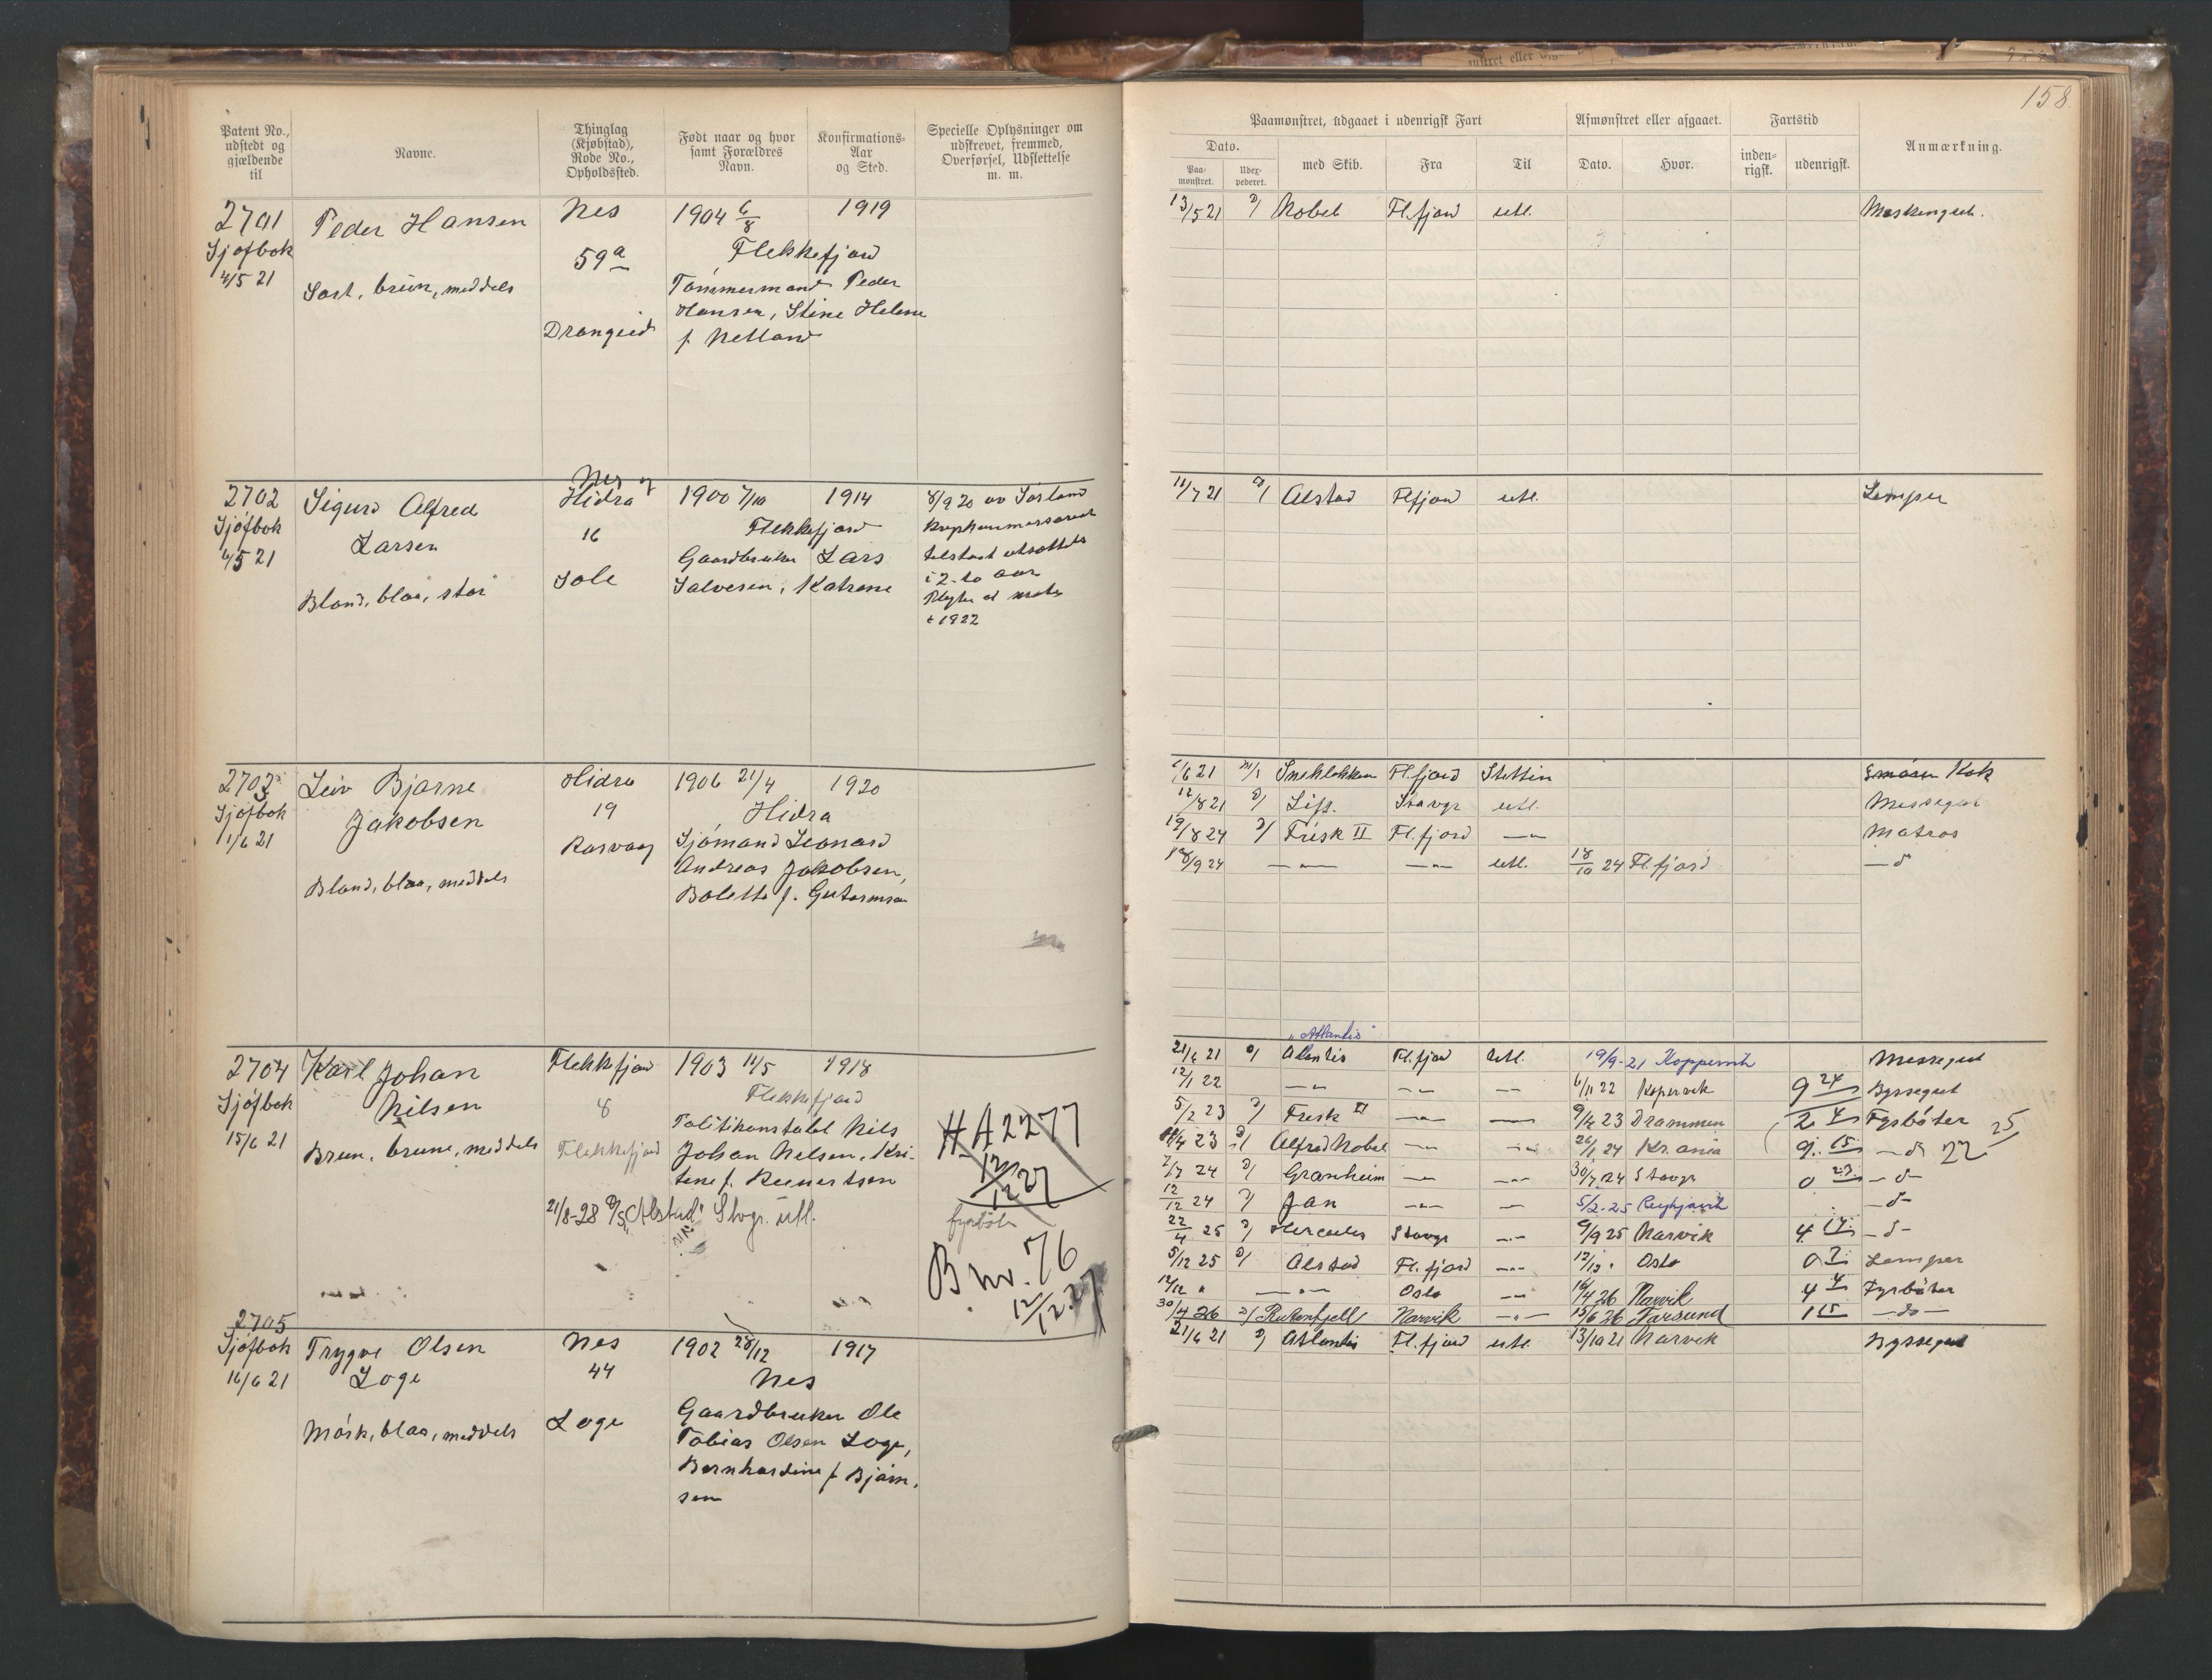 158.
Patent No., udstedt og gjældende til
Navne.
Thinglag (Kjøbstad), Rode No., Opholdssted.
Født naar og hvor samt Forældres Navn.
Konfirmations-Aar og Sted.
Specielle Oplysninger om udskrevet, fremmed, Overførsel, Udslettelse m. m.
Paamønstret, udgaaet i udenrigsk Fart
Afmønstret eller afgaaet.
Fartstid
Anmærkning.
Dato.
Paa-mønstret.
Udex-pederet.
med Skib.
Fra
Til
Dato.
Hvor.
inden-rigsk.
udenrigsk.
2701
Sjøfbok
4/5 21
Peder Hansen
Sort, brun, meddels
Nes
59a
Drangeid
1904 6/8 1919
Flekkefjord
Tømmermand Peder
Hansen, Stine Helene
f. Netland
13/5 21 Nobel Fl.fjord utl.
2702
Sjøfbok
4/5 21
Sigurd Alfred
Larsen
Blond, blaa, stor
Nes og
Hidra
16
Sole
1900 7/10 1914
Flekkefjord
Gaardbruker Lars
Salvesen, Katrine
8/9 20 av Sørland
utsættelse
i 2-to aar
1922
11/7 21 Alstad Flfjord utl. Lemper
2703
Sjøfbok
1/6 21
Leiv Bjarne
Jakobsen
Blond, blaa, meddels
Hidra
19
Rasvaag
1906 21/4 1920
Hidra
Sjømand Leonard
Andreas Jakobsen,
Bolette f. Gutormsen
2/6 21 Sneklokken Fl.fjord Stettin Kok
12/8 21 Stavgr utl. Messegut
19/8 24 Frisk II Fl.fjord —"— Matros
18/9 24 —"— —"— utl. 18/10 24 Fl.fjord —d
2704
Sjøfbok
15/6 21
Karl Johan
Nilsen
Brun, brune, meddels
Flekkefjord
8
Flekkefjord
1903 14/5 1918
Flekkefjord
Politikonstabel Nils
Johan Nilsen, Kri-
tine f. Reinertsen
21/8-28 D/S "Alstad" Stvgr. utl.
fyrbøt
HA2277
12/12 27
B nr. 76
12/12 27
"Atlantis"
21/6 21 Atlantis Fl.fjord utl. 19/9-21 Koppervik Messegut
12/1 22 —"— —"— —"— 6/11 22 Kopervik 9 24 Byssegut
5/2 23 Frisk II —"— —"— 9/4 23 Drammen 2 4 Fyrbøter
23 Alfred Nobel —"— —"— 26/1 24 Kr.ania 9. 15 —d 22 25
2/7 24 Granheim —"— —"— 30/7 24 Stavgr 0 23 —d—
12/12 24 Jan —"— —"— 5/2-25 Reykjavik —d—
22/4 25 Hercules Stavgr —"— 9/9 25 Narvik 4 17 —d—
5/12 25 Alstad Fl.fjord —"— 12/12 " Oslo 0 7 Lemper
12/12 " —"— Oslo —"— 16/4 26 Narvik 4 4 Fyrbøter
30/4 26 Rutenfjell Narvik —"— 15/6 26 Farsund 1 15 —do—
2705
Sjøfbok
16/6 21
Trygve Olsen
Loge
Mørk, blaa, meddels
Nes
44
Loge
1902 28/12 1917
Nes
Gaardbruker Ole
Tobias Olsen Loge,
Bernhardine f. Bjørn-
sen
21/6 21 Atlantis Fl.fjord utl. 13/10 21 Narvik Byssegut